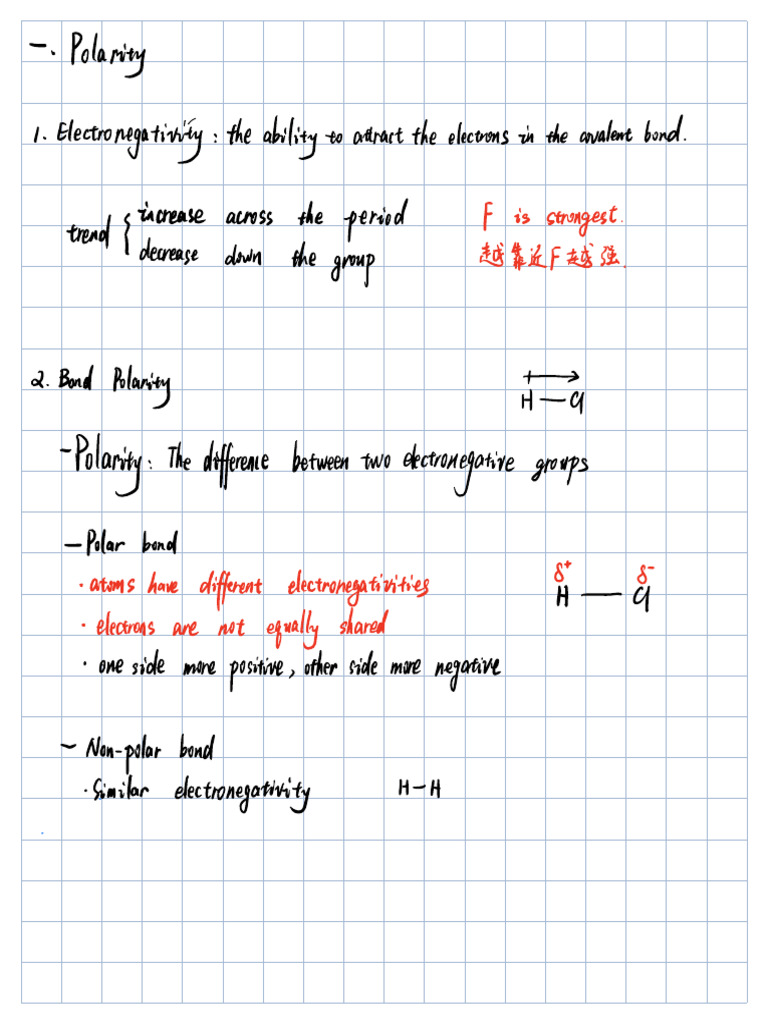 一. Polarity
1. Electronegativity: the ability to attract the electrons in the covalent bond.
trend { increase across the period
decrease down the group
F is strongest.
越靠近F越强.
2. Bond Polarity
H—Cl
-Polarity: The difference between two electronegative groups
-Polar bond
· atoms have different electronegativities
· electrons are not equally shared
δ+ δ-
H — Cl
· one side more positive, other side more negative
- Non-polar bond
· Similar electronegativity H-H